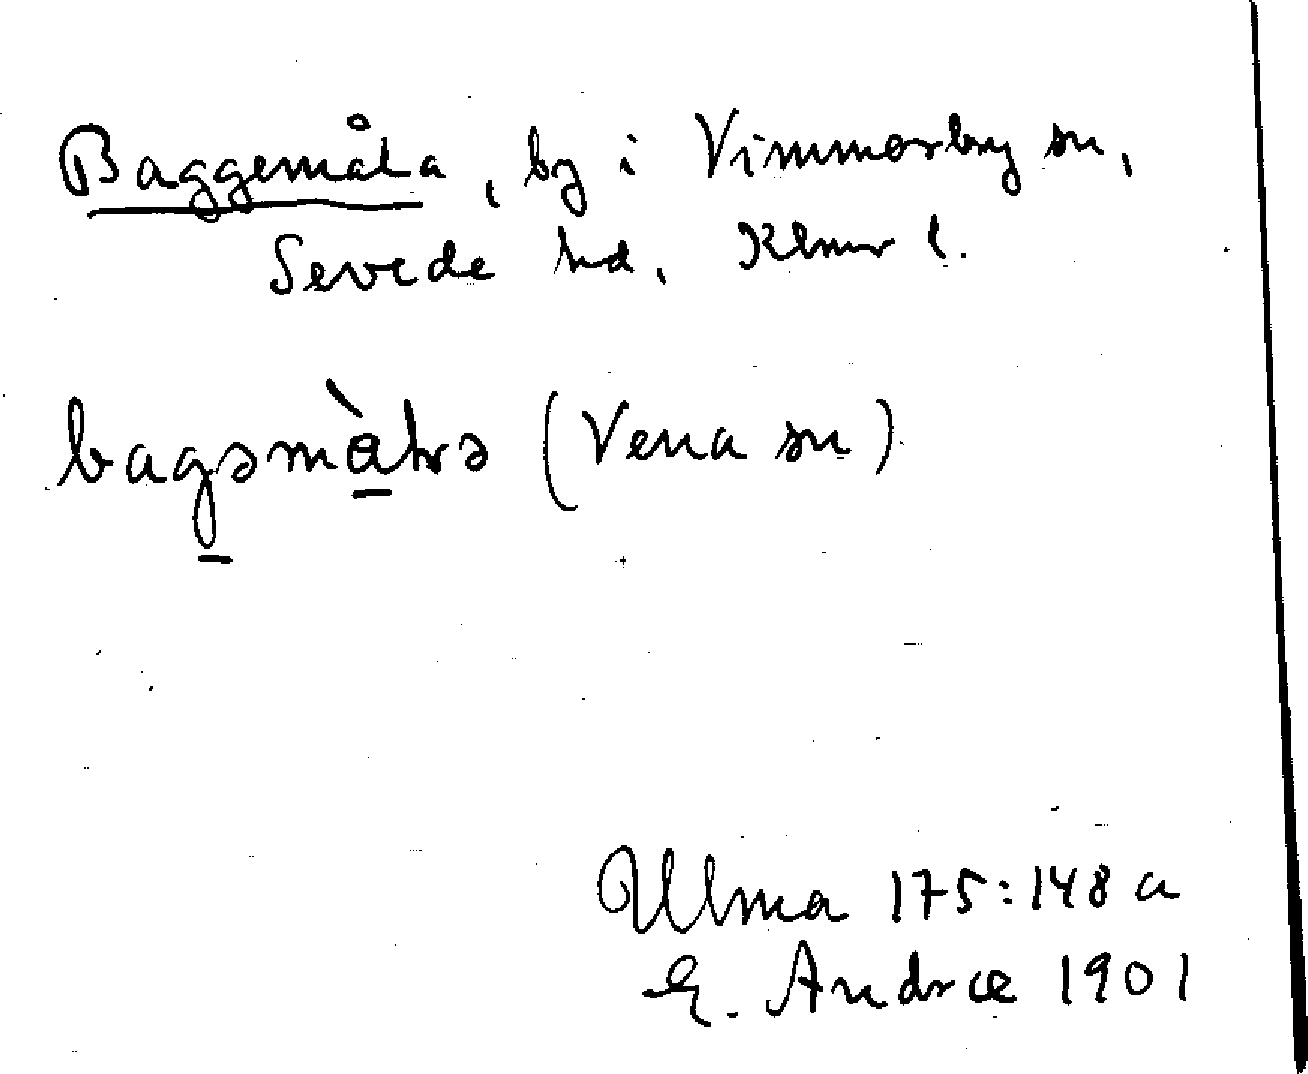 Baggemåla, by i Vimmerby sn,
Sevede hd, Klmr l.
bagəmàlrə (Vena sn)
Ulma 175:148 a
E. Andræ 1901